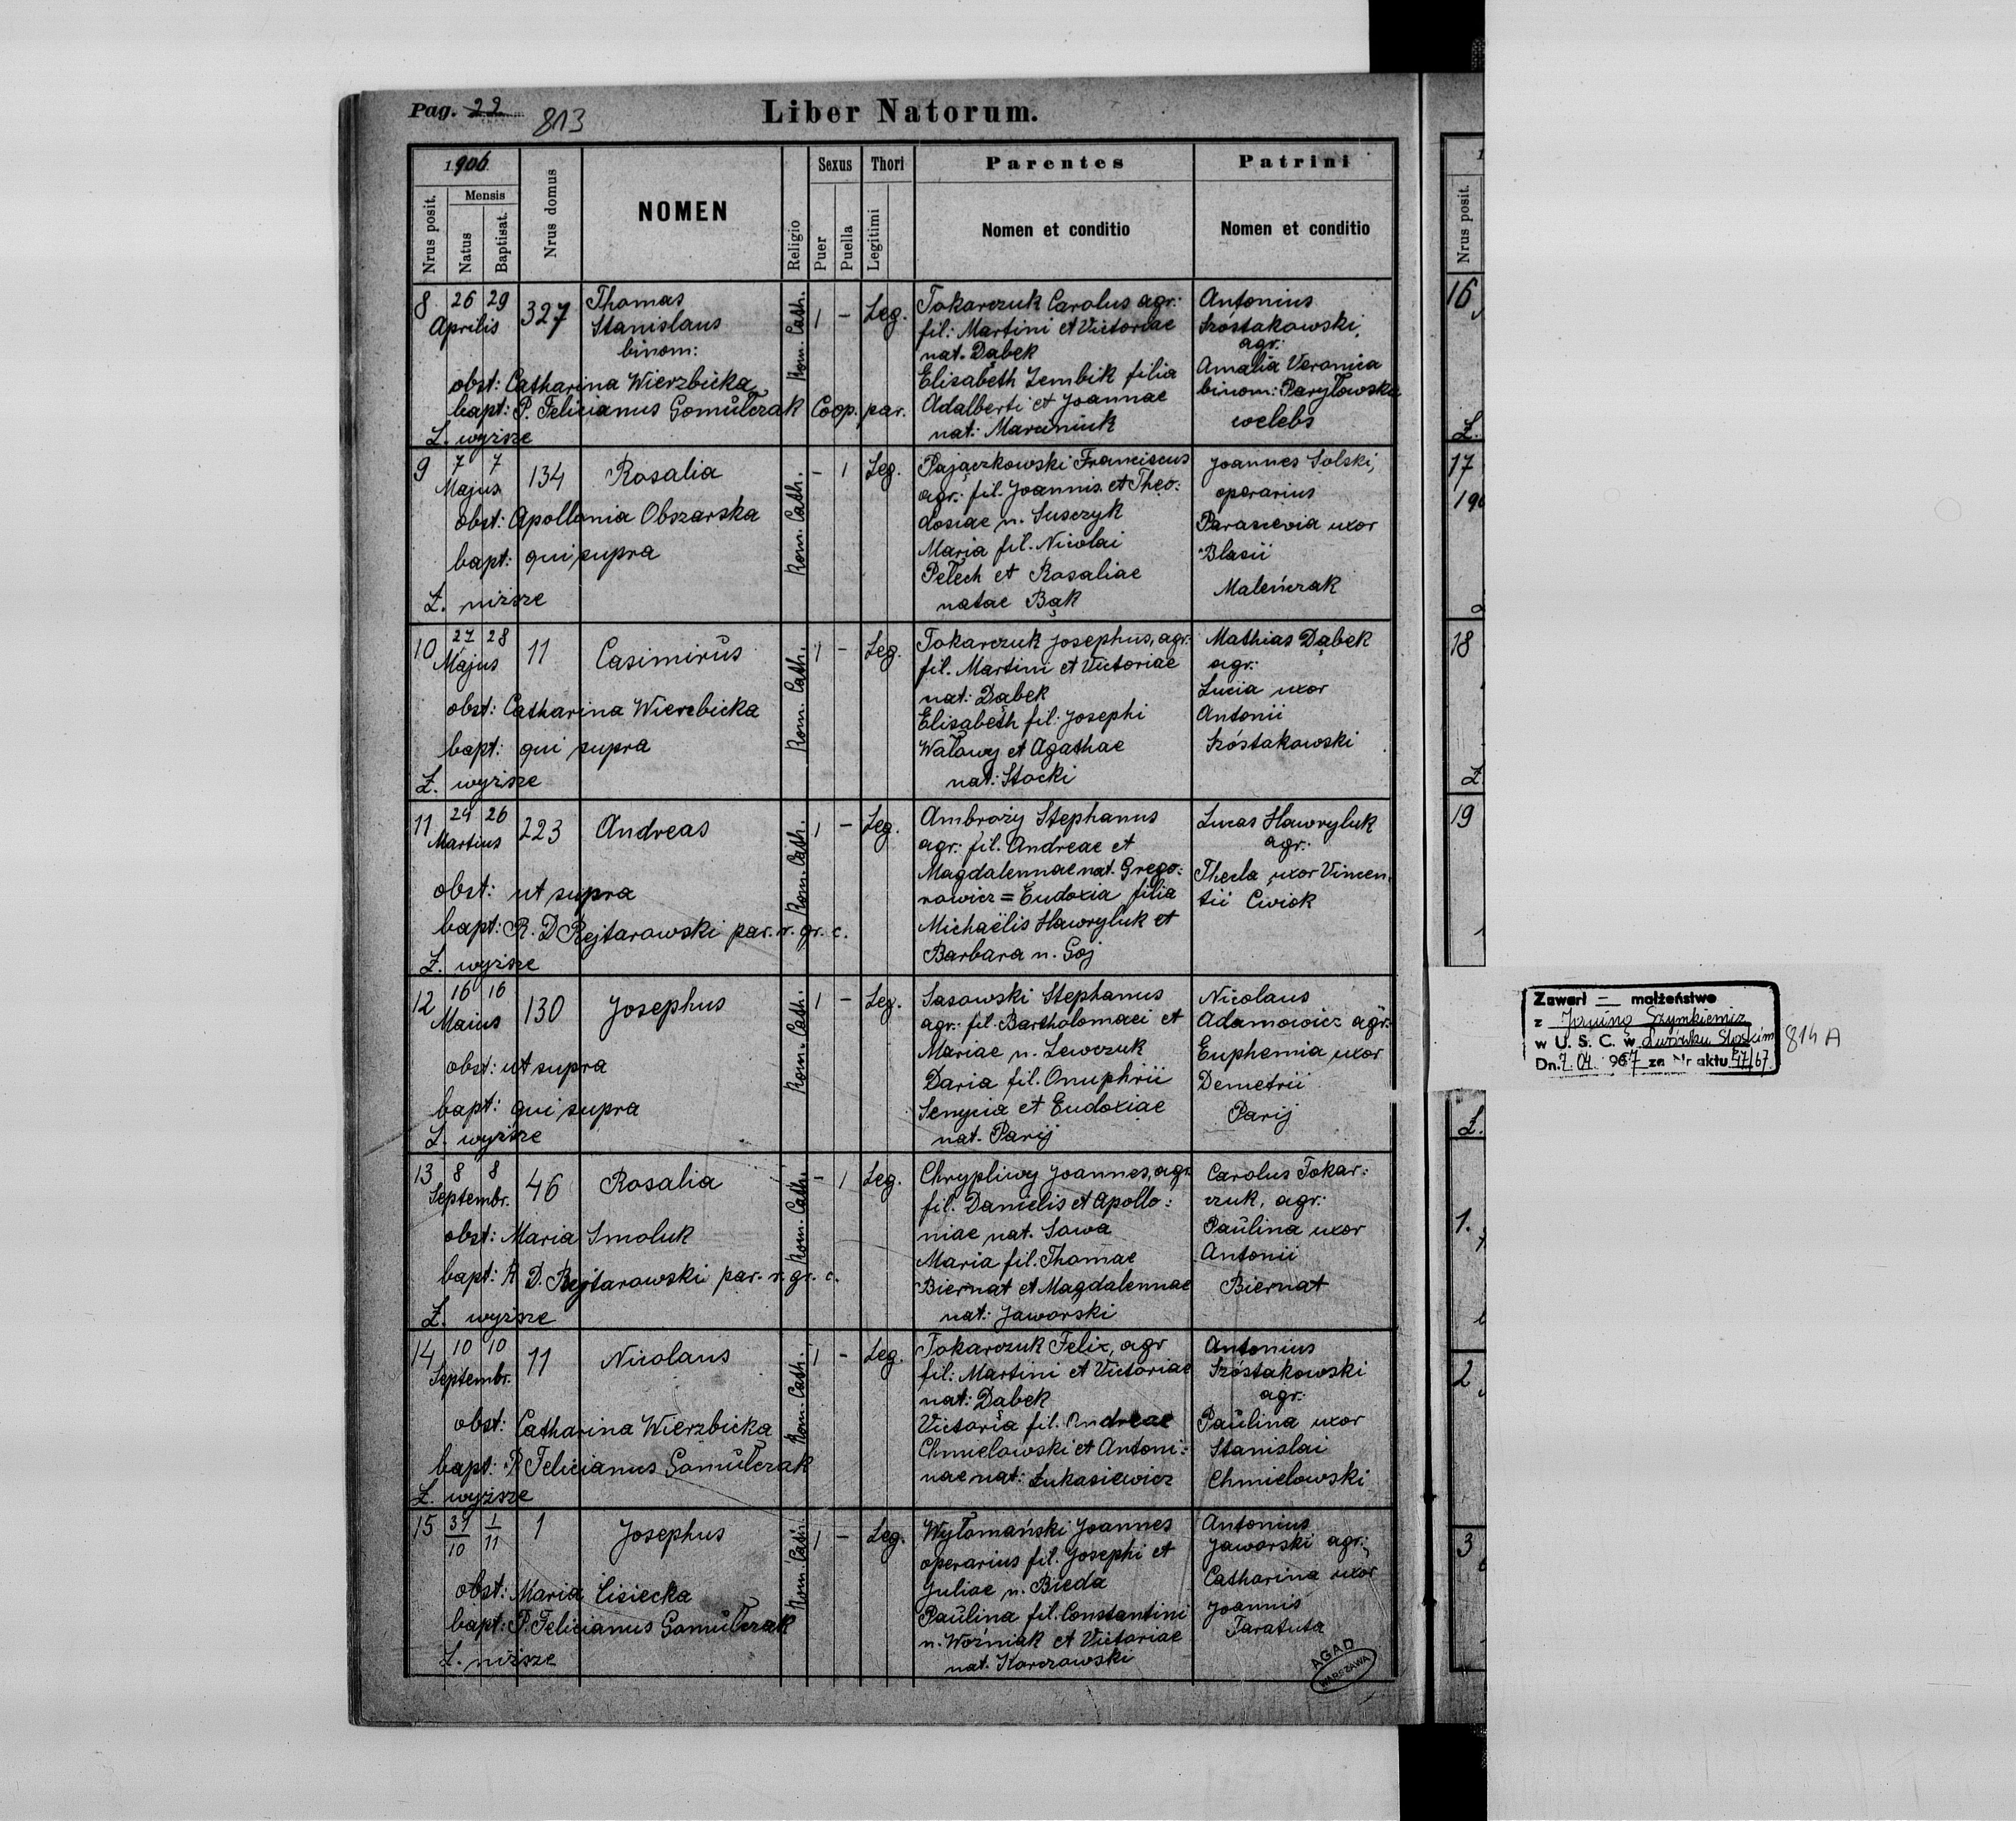 Pag. 22
813
Liber Natorum.
1906
Nrus posit.
Mensis
Natus
Baptisat.
Nrus domus
NOMEN
Religio
Sexus
Puer
Puella
Thori
Legitimi
Parentes
Nomen et conditio
Patrini
Nomen et conditio
8 26 29 Aprilis 327
Thomas
Stanislaus
binom:
obst: Catharina Wierzbicka
bapt: P. Felicianus Gomułczak Coop. par.
Z. wyższe
Rom. Cath. 1 - Leg.
Tokarczuk Carolus agr:
fil: Martini et Victoriae
nat. Dąbek
Elisabeth Zembik filia
Adalberti et Joannae
nat: Maruniuk
Antonius
Szóstakowski,
agr:
Amalia Veronica
binom: Paryłowska
coelebs
9 7 7 Majus 134 Rosalia
obst: Apollonia Obszarska
bapt: qui supra
Z. niższe
Rom. Cath. - 1 Leg.
Pajączkowski Franciscus
agr: fil. Joannis et Theo:
dosiae n. Susczyk
Maria fil. Nicolai
Pełech et Rosaliae
natae Bąk
Joannes Solski,
operarius
Parascevia uxor
Blasii
Maleńczak
10 27 28 Majus 11 Casimirus
obst: Catharina Wierzbicka
bapt: qui supra
Z. wyższe
Rom. Cath. 1 - Leg.
Tokarczuk Josephus, agr.
fil. Martini et Victoriae
nat: Dąbek
Elisabeth fil: Josephi
Wałowy et Agathae
nat: Stocki
Mathias Dąbek
agr:
Lucia uxor
Antonii
Szóstakowski
11 24 26 Martius 223 Andreas
obst: ut supra
bapt: R. D Rejtarowski par. r. gr. c.
Z. wyższe
Rom. Cath. 1 - Leg.
Ambroży Stephanus
agr: fil. Andreae et
Magdalennae nat. Grego:
rowicz = Eudoxia filia
Michaëlis Hawryluk et
Barbara n. Goj
Lucas Hawryluk
agr:
Thecla uxor Vincen
tii Cwiok
12 16 16 Maius 130 Josephus
obst: ut supra
bapt: qui supra
Z. wyższe
Rom. Cath. 1 - Leg.
Sasowski Stephanus
agr: fil. Bartholomaei et
Mariae n. Lewczuk
Daria fil. Onuphrii
Senycia et Eudoxiae
nat. Parij
Nicolaus
Adamowicz agr:
Euphemia uxor
Demetrii
Parij
13 8 8 Septembr. 46 Rosalia
obst: Maria Smoluk
bapt: R D. Rejtarowski par. r. gr. c.
Z. wyższe
Rom. Cath. - 1 Leg.
Chrypliwy Joannes, agr.
fil. Danielis et Apollo:
niae nat. Sawa
Maria fil. Thomae
Biernat et Magdalennae
nat: Jaworski
Carolus Tokar:
czuk, agr:
Paulina uxor
Antonii
Biernat
14 10 10 Septembr. 11 Nicolaus
obst: Catharina Wierzbicka
bapt: P Felicianus Gomułczak
Z. wyższe
Rom. Cath. 1 - Leg.
Tokarczuk Felix, agr
fil: Martini et Victoriae
nat: Dąbek
Victoria fil. Andreae
Chmielowski et Antoni:
nae nat: Łukasiewicz
Antonius
Szóstakowski
agr:
Paulina uxor
Stanislai
Chmielowski
15 31/10 1/11 1 Josephus
obst: Maria Lisiecka
bapt: P. Felicianus Gomułczak
Z. niższe
Rom. Cath. 1 - Leg.
Wyłomański Joannes
operarius fil. Josephi et
Juliae n. Bieda
Paulina fil. Constantini
n. Woźniak et Victoriae
nat. Karczowski
Antonius
Jaworski agr:,
Catharina uxor
Joannis
Taratuta
AGAD
WARSZAWA
Nrus posit.
16
Z.
17
190
18
Z
19
Z.
1.
2
3
Zawarł — małżeństwo
z Janiną Szymkiewicz
w U. S. C. w Lwówku Śląskim
Dn. 7.04. 967 za Nr aktu 47/67.
814 A